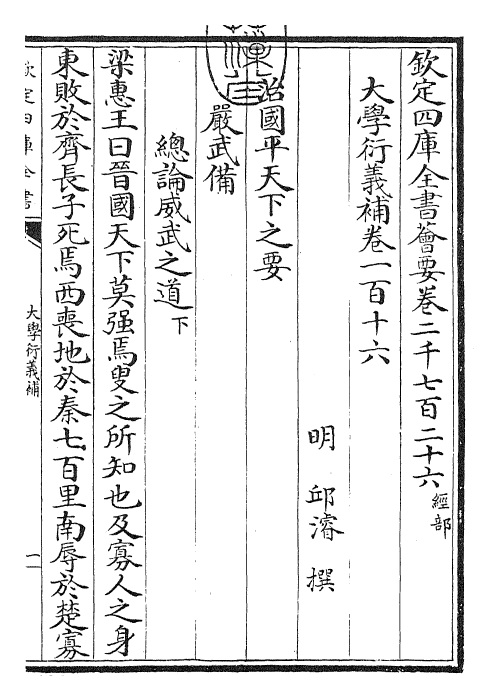 欽定四庫全書薈要卷二千七百二十六經部
大學衍義補卷一百十六
明 邱濬 撰
治國平天下之要
嚴武備
總論威武之道下
梁惠王曰晉國天下莫强焉叟之所知也及寡人之身
東敗於齊長子死焉西喪地於秦七百里南辱於楚寡
欽定四庫全書
大學衍義補
一